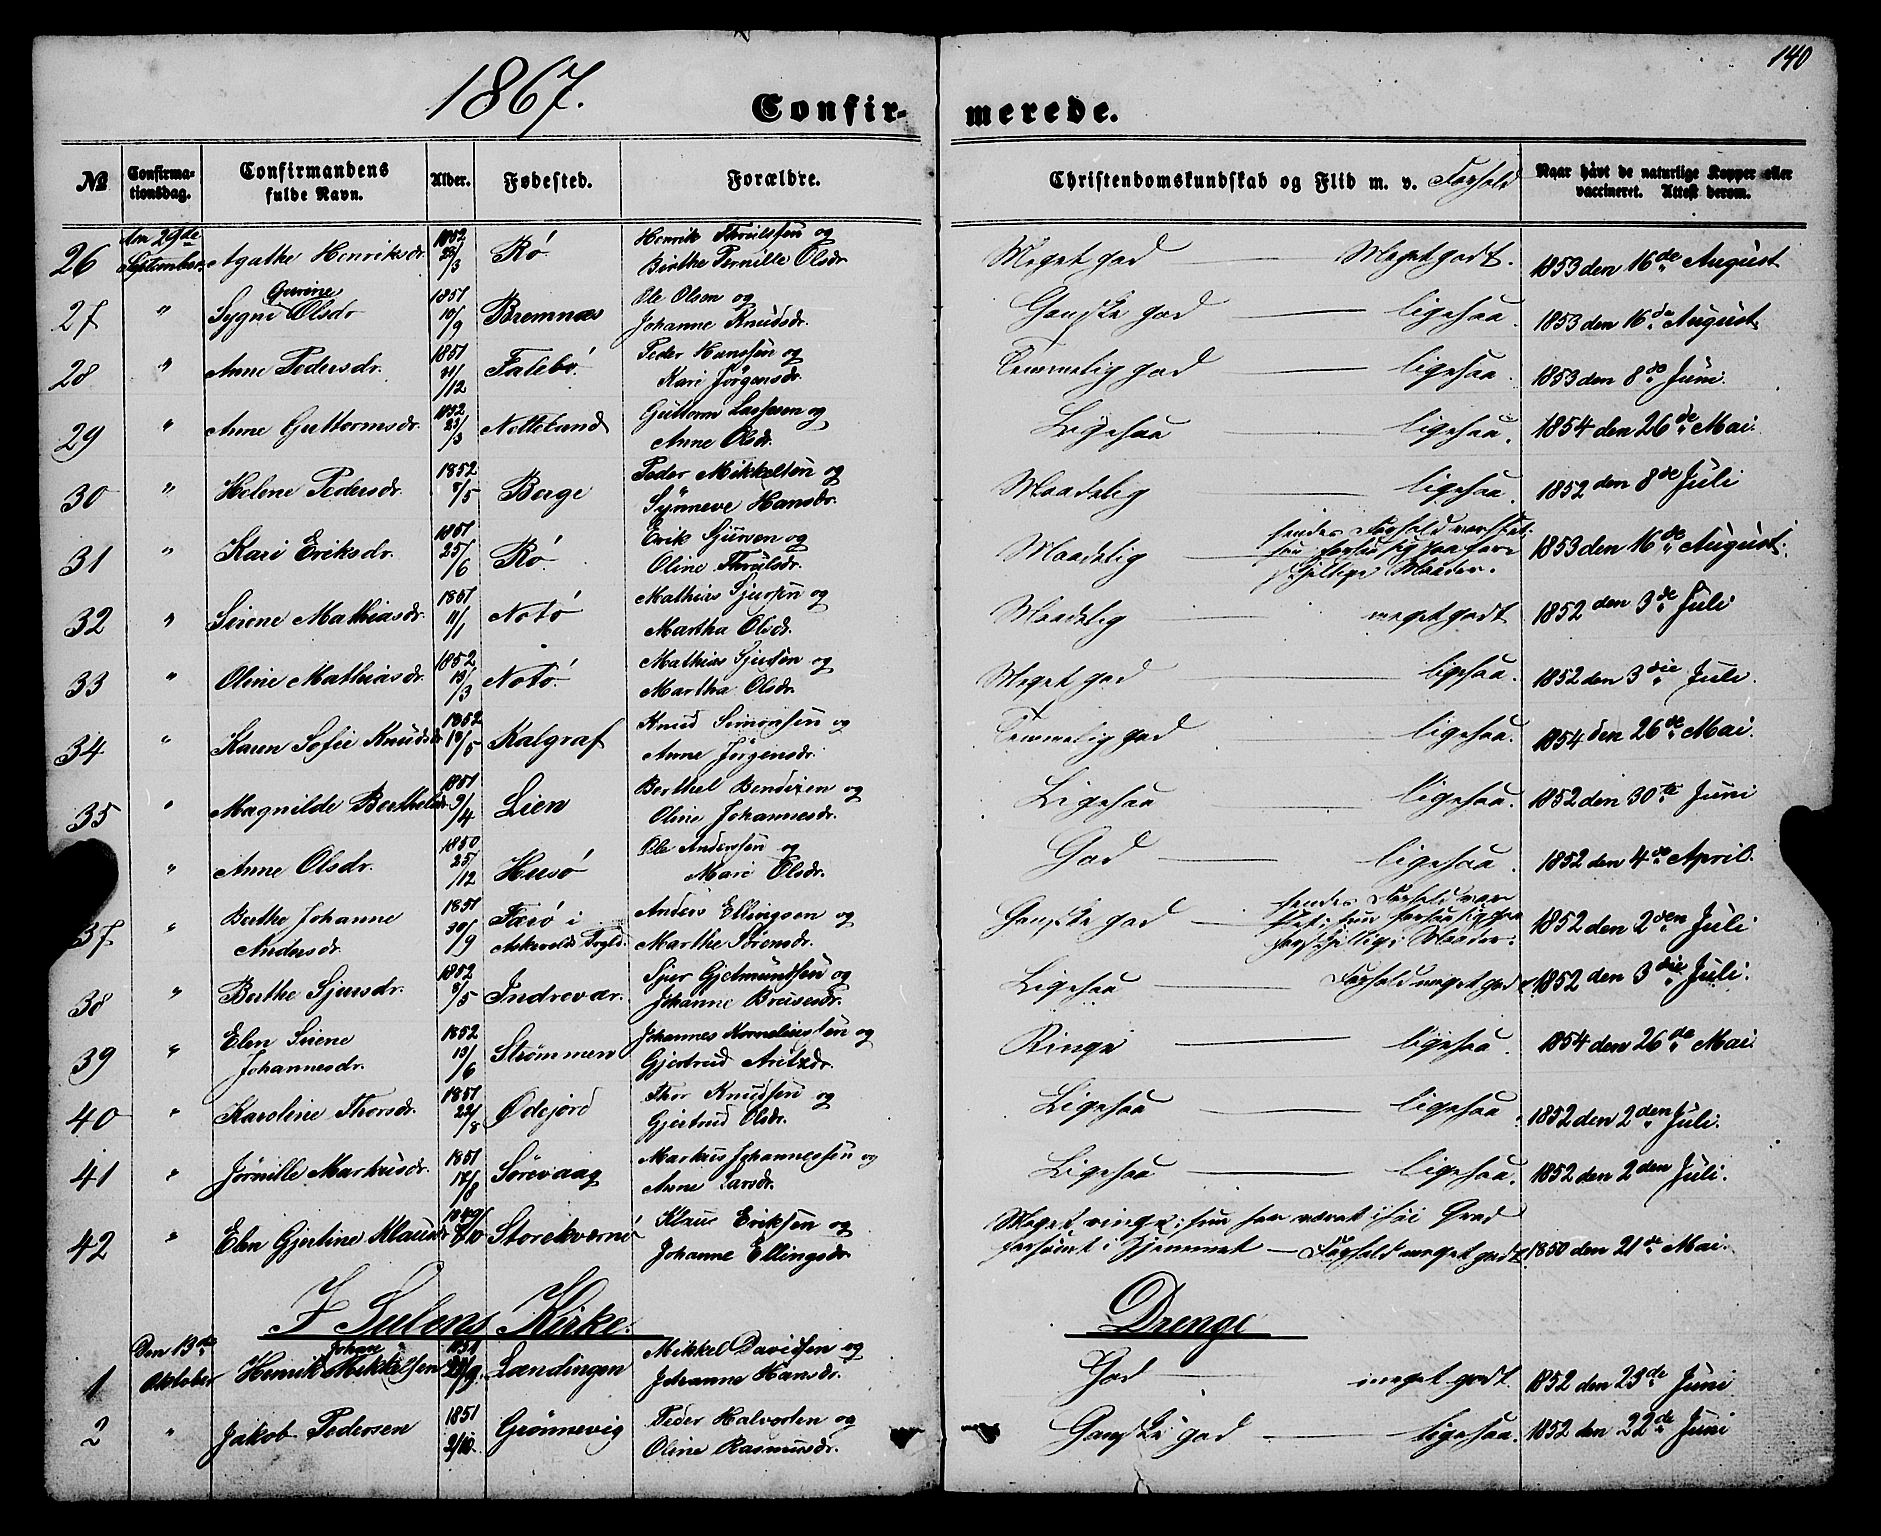 140
1867.
Confir- merede.
№ Confirma-tionsdag. Confirmandens fulde Navn. Alder. Fødested. Forældre. Christendomskundskab og Flid m. v. Forhold Naar havt de naturlige Kopper eller vaccineret. Attest derom.
26 den 29de September Agathe Henriksdr. 1852 23/3 Rö Henrik Thrulssen og Birthe Pernille Olsdr. Meget god — Meget godt. 1853 den 16de August
27 " Sygni Gurine Olsdr 1851 10/9 Bremnæs Ole Olsen og Johanne Knudsdr. Ganske god — ligesaa. 1853 den 16de August
28 " Anne Pedersdr. 1851 21/12 Falebö. Peder Hanssen og Kari Jörgensdr. Temmelig god — ligesaa. 1853 den 8de Juni.
29 " Anne Guttormsdr. 1852 23/3 Nottelund Guttorm Lassesen og Anne Olsdr. Ligesaa — ligesaa. 1854 den 26de Mai.
30 " Helene Pedersdr. 1852 8/5 Berge Peder Mikkelsen og Synneve Hansdr. Maadelig — ligesaa. 1852 den 8de Juli
31 " Kari Eriksdr. 1851 25/6 Rö. Erik Sjursen og Oline Thrulsdr. Maadelig — hendes Forhold var slet; hun forsaa sig paa forskjellige Maader. 1853 den 16de August.
32 " Serene Mathiasdr. 1851 11/1 Notö Mathias Sjursen og Martha Olsdr. Maadelig — meget godt 1852 den 3de Juli
33 " Oline Mathiasdr. 1852 19/3 Notö. Mathias Sjursen og Martha Olsdr. Meget god — ligesaa. 1852 den 3die Juli.
34 " Karen Sofie Knudsdr 1852 19/5 Kalgraf Knud Simonsen og Anne Jörgensdr. Temmelig god — ligesaa. 1854 den 26de Mai.
35 " Magnilde Bertheldr 1851 9/4 Lien Berthel Bendixen og Oline Johannesdr. Ligesaa — ligesaa. 1852 den 30te Juni
" Anne Olsdr. 1850 25/12 Husö Ole Anderssen og Mari Elsdr. God — ligesaa. 1852 den 4de April.
37 " Berthe Johanne Andersdr. 1851 30/9 Færö i Askevolds Prgld. Anders Ellingsen og Marthe Sörensdr. Ganske god — hendes Forhold var slet; hun forsaa sig paa forskjellige Maader. 1852 den 2den Juli
38 " Berthe Sjursdr. 1852 8/5 Indrevær. Sjur Gjetmundsen og Johanne Breisesdr. Ligesaa — Forhold meget godt. 1852 den 3die Juli.
39 " Elen Serene Johannesdr. 1852 19/6 Strömmen Johannes Korneliussen og Gjertrud Antzdr. Ringe — ligesaa. 1854 den 26de Mai.
40 " Karoline Thorsdr. 1851 22/8 Ödejord Thor Knudsen og Gjertrud Olsdr. Ligesaa — ligesaa. 1852 den 2den Juli.
41 " Jörnille Markusdr. 1851 17/8 Sörevaag Markus Johannessen og Anne Larsdr. Ligesaa — ligesaa. 1852 den 2den Juli.
42 " Elen Gjertine Klausdr 1849 8/10 Storekvernö Klaus Eriksen og Johanne Ellingsdr. Meget ringe; hun har været i höi Grad forsömt i Hjemmet — Forhold meget godt. 1850 den 21de Mai.
I Sulens Kirke. Drenge
1 Den 13de Oktober Henrik Johan Mikkelsen 1851 /9. Lændingen Mikkel Davidsen og Johanne Hansdr. God — meget godt. 1852 den 23de Juni
2 " Jakob Pedersen 1851 2/10. Grönnevig Peder Halvorsen og Oline Rasmusdr. Ganske god — ligesaa. 1852 den 22de Juni